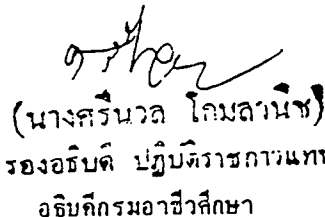 (นางศรีนวล โกมลวนิช)
รองอธิบดี ปฏิบัติราชการแทน
อธิบดีกรมอาชีวศึกษา